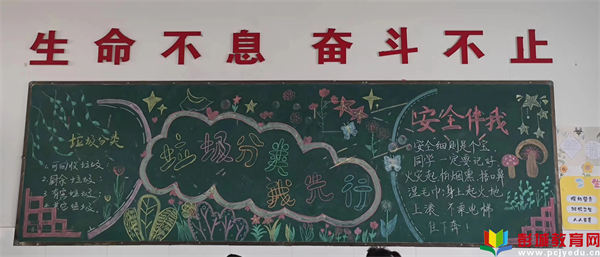 生命不息 奋斗不止
垃圾分类
1.可回收垃圾;
2.厨余垃圾;
3.有害垃圾;
4.其他垃圾;
垃圾分类
我先行
安全伴我
安全细则是个宝
同学一定要记好
火灾起初烟熏 捂口鼻
湿毛巾;身上起火地
上滚 不乘电梯
往下奔!
彭城教育网
www.pcjyedu.cn